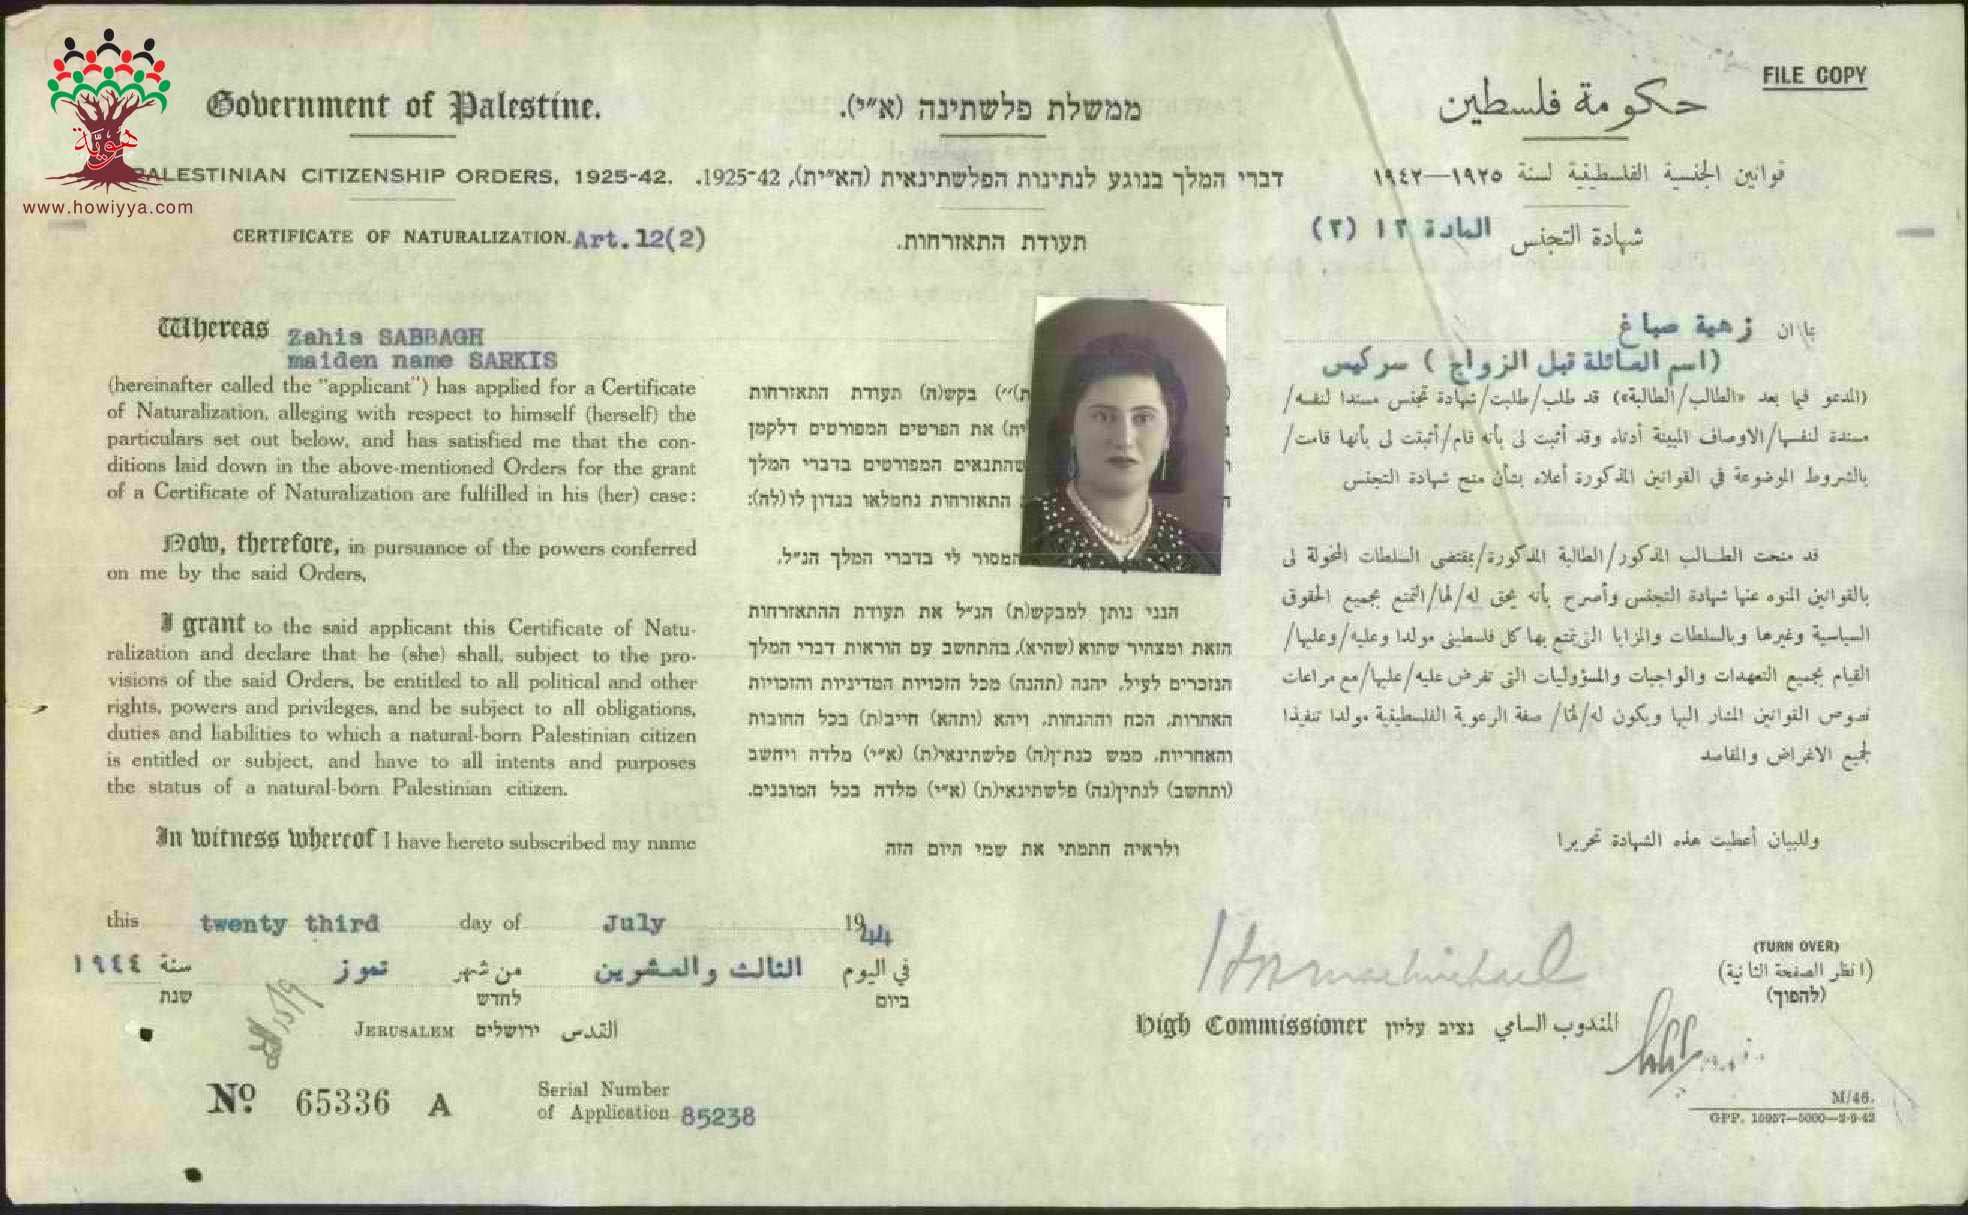 FILE COPY
هوية
www.howiyya.com
Government of Palestine.
ממשלת פלשתינה (א״י).
حكومة فلسطين
PALESTINIAN CITIZENSHIP ORDERS, 1925-42.
דברי המלך בנוגע לנתינות הפלשתינאית (הא״ית), 1925-42.
قوانين الجنسية الفلسطينية لسنة ١٩٢٥—١٩٤٢
CERTIFICATE OF NATURALIZATION. Art.12(2)
תעודת התאזרחות.
شهادة التجنس المادة ١٢ (٢)
Whereas Zahia SABBAGH
maiden name SARKIS
(hereinafter called the "applicant") has applied for a Certificate
of Naturalization, alleging with respect to himself (herself) the
particulars set out below, and has satisfied me that the con-
ditions laid down in the above-mentioned Orders for the grant
of a Certificate of Naturalization are fulfilled in his (her) case:
Now, therefore, in pursuance of the powers conferred
on me by the said Orders,
I grant to the said applicant this Certificate of Natu-
ralization and declare that he (she) shall, subject to the pro-
visions of the said Orders, be entitled to all political and other
rights, powers and privileges, and be subject to all obligations,
duties and liabilities to which a natural-born Palestinian citizen
is entitled or subject, and have to all intents and purposes
the status of a natural-born Palestinian citizen.
In witness whereof I have hereto subscribed my name
בקש(ה) תעודת התאזרחות
את הפרטים המפורטים דלקמן
שהתנאים המפורטים בדברי המלך
התאזרחות נתמלאו בנדון לו (לה):
המסור לי בדברי המלך הנ״ל,
הנני נותן למבקש(ת) הנ״ל את תעודת ההתאזרחות
הזאת ומצהיר שהוא (שהיא), בהתחשב עם הוראות דברי המלך
הנזכרים לעיל, יהנה (תהנה) מכל הזכויות המדיניות והזכויות
האחרות, הכח וההנחות, ויהא (ותהא) חייב(ת) בכל החובות
והאחריות, ממש כנתין(ה) פלשתינאי(ת) (א״י) מלדה ויחשב
(ותחשב) לנתין(נה) פלשתינאי(ת) (א״י) מלדה בכל המובנים.
ולראיה חתמתי את שמי היום הזה
بما ان زهية صباغ
(اسم العائلة قبل الزواج ) سركيس
(المدعو فيما بعد «الطالب/الطالبة») قد طلب/طلبت/شهادة تجنس مسندا لنفسه/
مسندة لنفسها/الاوصاف المبينة أدناه وقد أثبت لى بأنه قام/أثبتت لى بأنها قامت/
بالشروط الموضوعة في القوانين المذكورة أعلاه بشأن منح شهادة التجنس
قد منحت الطالب المذكور/الطالبة المذكورة/بمقتضى السلطات المخولة لى
بالقوانين المنوه عنها شهادة التجنس وأصرح بأنه يحق له/لها/التمتع بجميع الحقوق
السياسية وغيرها وبالسلطات والمزايا التي يتمتع بها كل فلسطيني مولدا وعليه/وعليها/
القيام بجميع التعهدات والواجبات والمسؤوليات التى تفرض عليه/عليها/مع مراعات
نصوص القوانين المشار اليها ويكون له/لها/ صفة الرعوية الفلسطينية مولدا تنفيذا
لجميع الاغراض والمقاصد
وللبيان أعطيت هذه الشهادة تحريرا
this twenty third day of July 1944
في اليوم الثالث والعشرين من شهر تموز سنة ١٩٤٤
ביום לחדש שנת
JERUSALEM ירושלים القدس
High Commissioner נציב עליון المندوب السامي
(TURN OVER)
(انظر الصفحة الثانية)
(להפוך)
No. 65336 A
Serial Number
of Application 85238
M/46.
GPP. 15957—5000—2-9-42